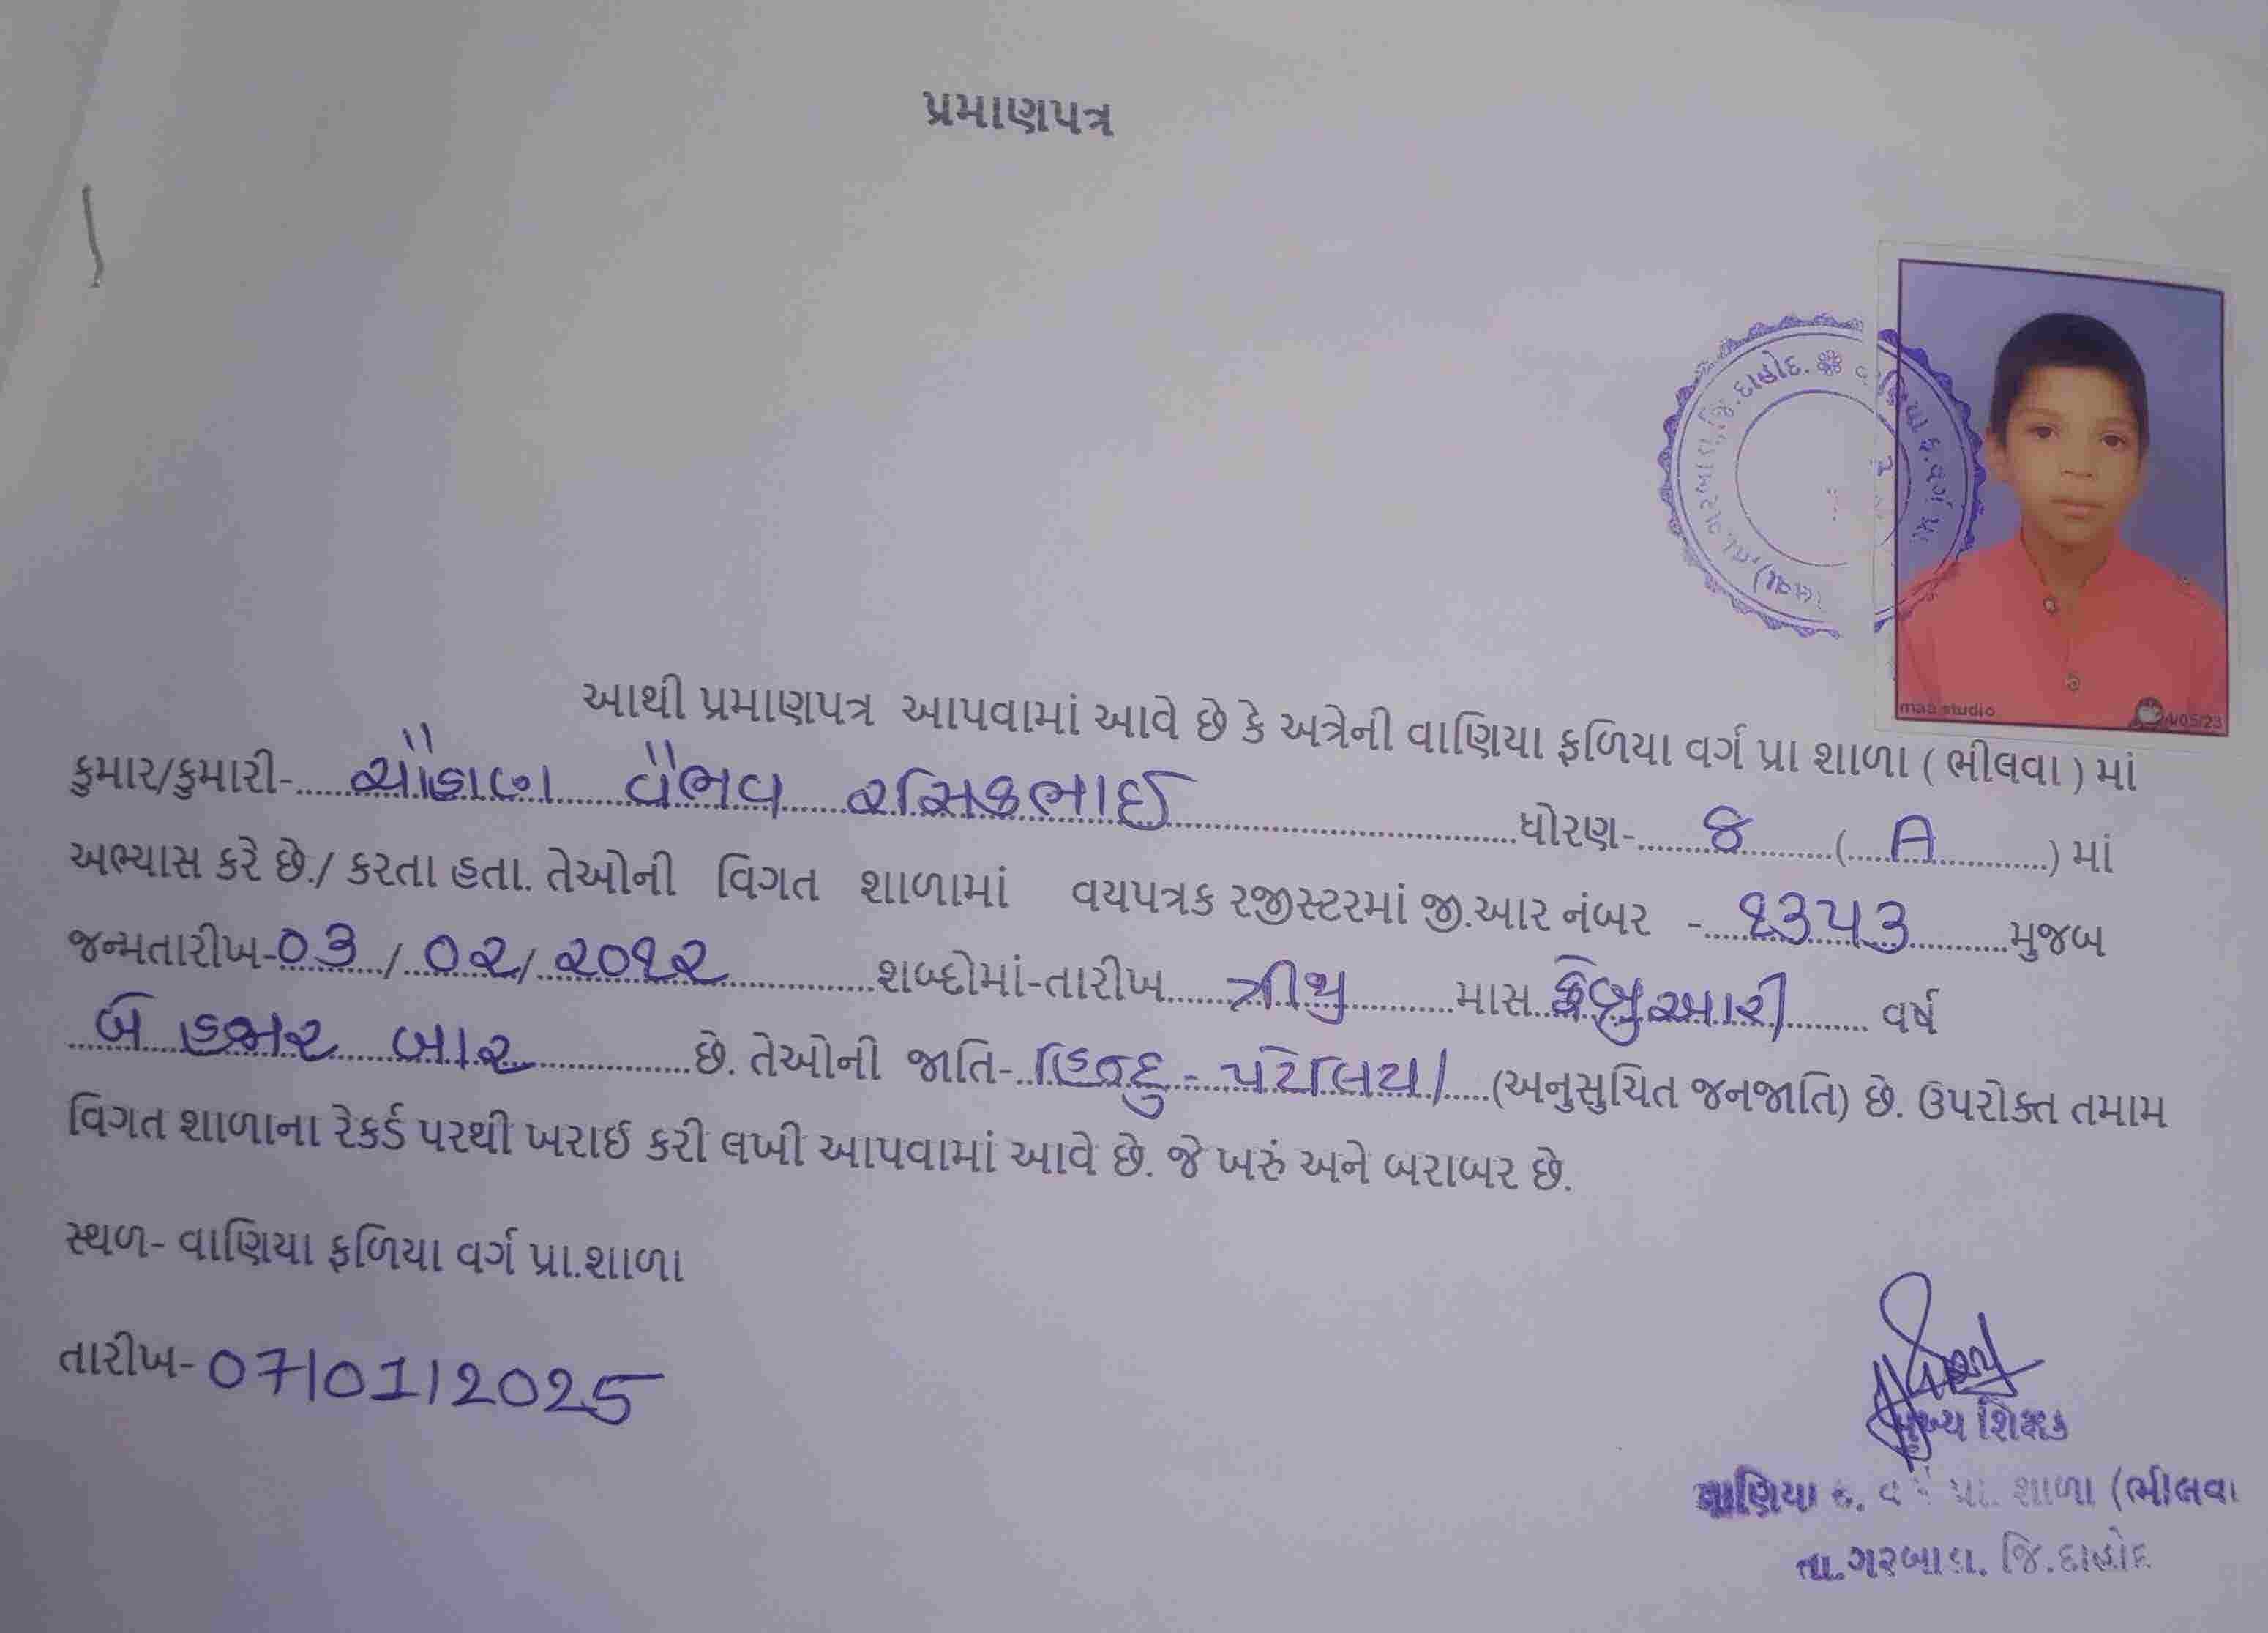 પ્રમાણપત્ર
જિ.દાહોદ.
maa studio
આથી પ્રમાણપત્ર આપવામાં આવે છે કે અત્રેની વાણિયા ફળિયા વર્ગ પ્રા શાળા ( ભીલવા ) માં
કુમાર/કુમારી- ચૌહાણ વૈભવ રસિકભાઈ ધોરણ- 8 ( A ) માં
અભ્યાસ કરે છે./ કરતા હતા. તેઓની વિગત શાળામાં વયપત્રક રજીસ્ટરમાં જી.આર નંબર - ૧૩૫૩ મુજબ
જન્મતારીખ- ૦૩ / ૦૨ / ૨૦૧૨ શબ્દોમાં-તારીખ ત્રીજી માસ ફેબ્રુઆરી વર્ષ
બે હજાર બાર છે. તેઓની જાતિ- હિન્દુ - પટેલિયા (અનુસુચિત જનજાતિ) છે. ઉપરોક્ત તમામ
વિગત શાળાના રેકર્ડ પરથી ખરાઈ કરી લખી આપવામાં આવે છે. જે ખરું અને બરાબર છે.
સ્થળ- વાણિયા ફળિયા વર્ગ પ્રા.શાળા
તારીખ- 07/01/2025
મુખ્ય શિક્ષક
વાણિયા ફ. વર્ગ પ્રા. શાળા (ભીલવા
તા.ગરબાડા. જિ.દાહોદ